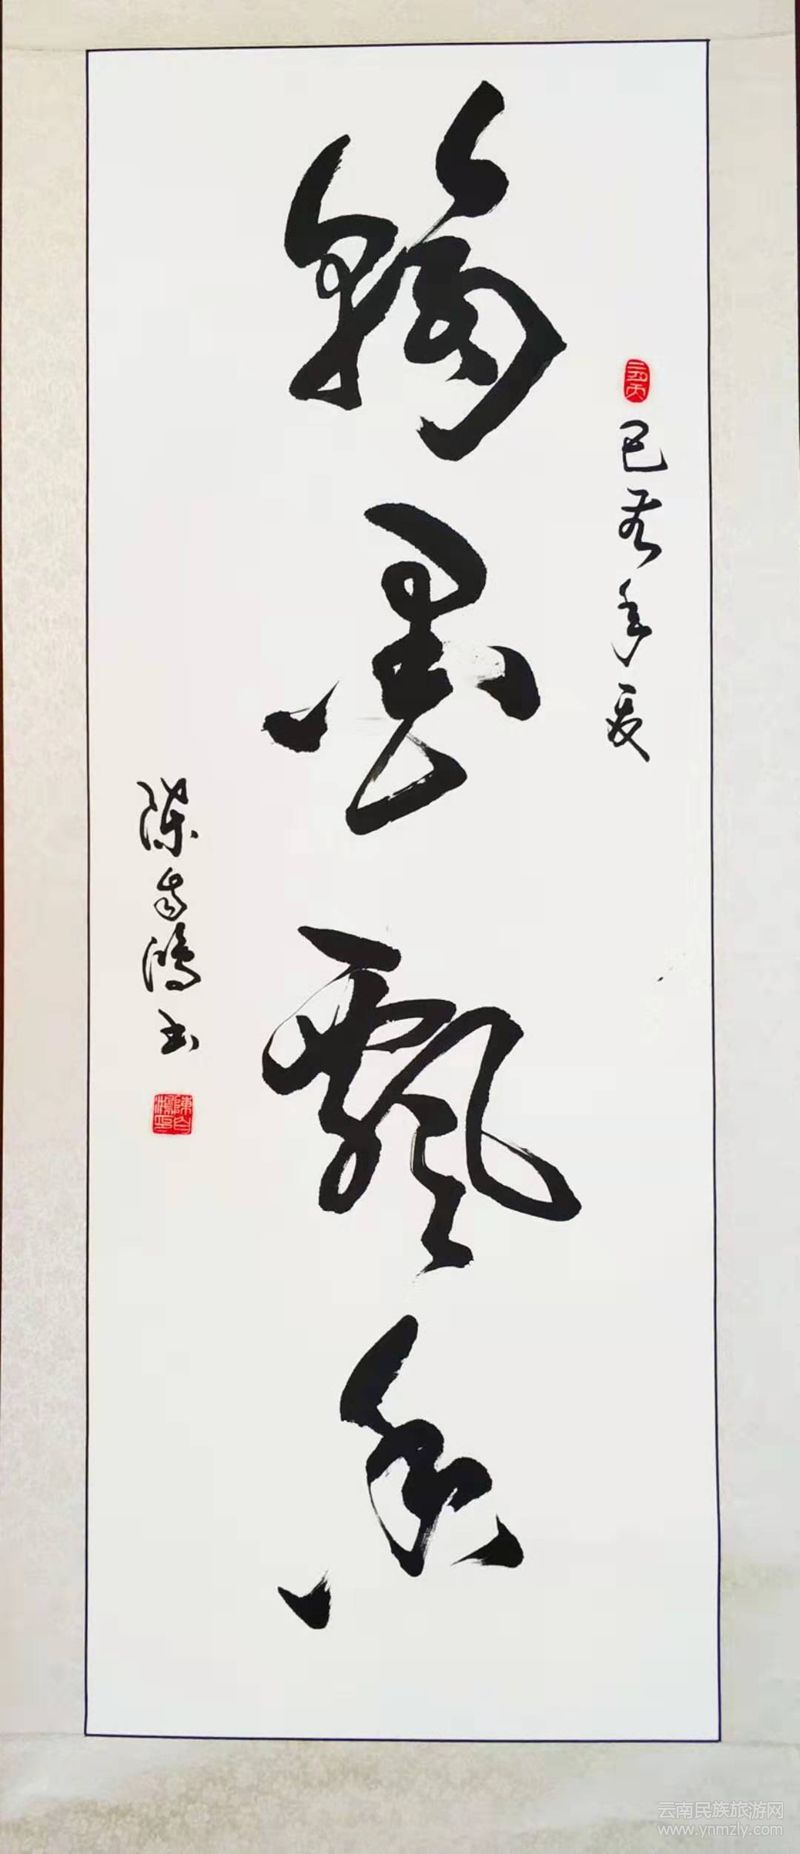 己亥年夏
翰墨飘香
陈自鸿书
云南民族旅游网
www.ynmzly.com